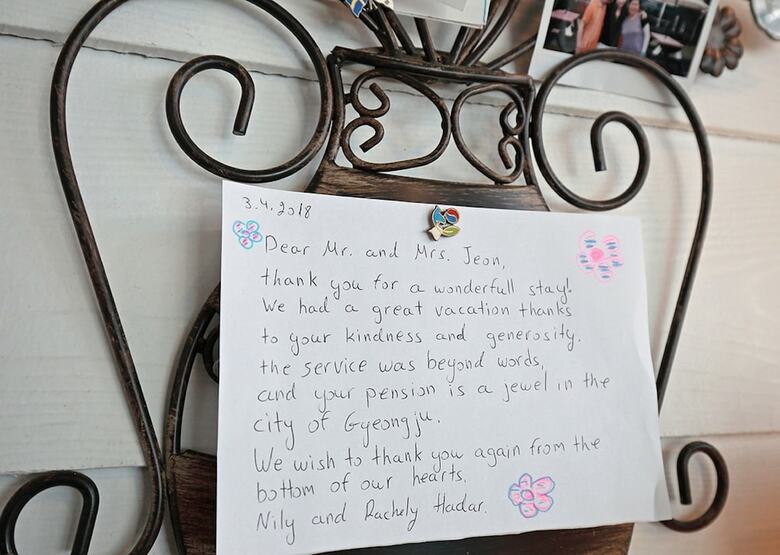 3.4.2018
Dear Mr. and Mrs. Jeon,
thank you for a wonderfull stay!
We had a great vacation thanks
to your kindness and generosity.
the service was beyond words,
and your pension is a jewel in the
city of Gyeongju.
We wish to thank you again from the
bottom of our hearts.
Nily and Rachely Hadar.